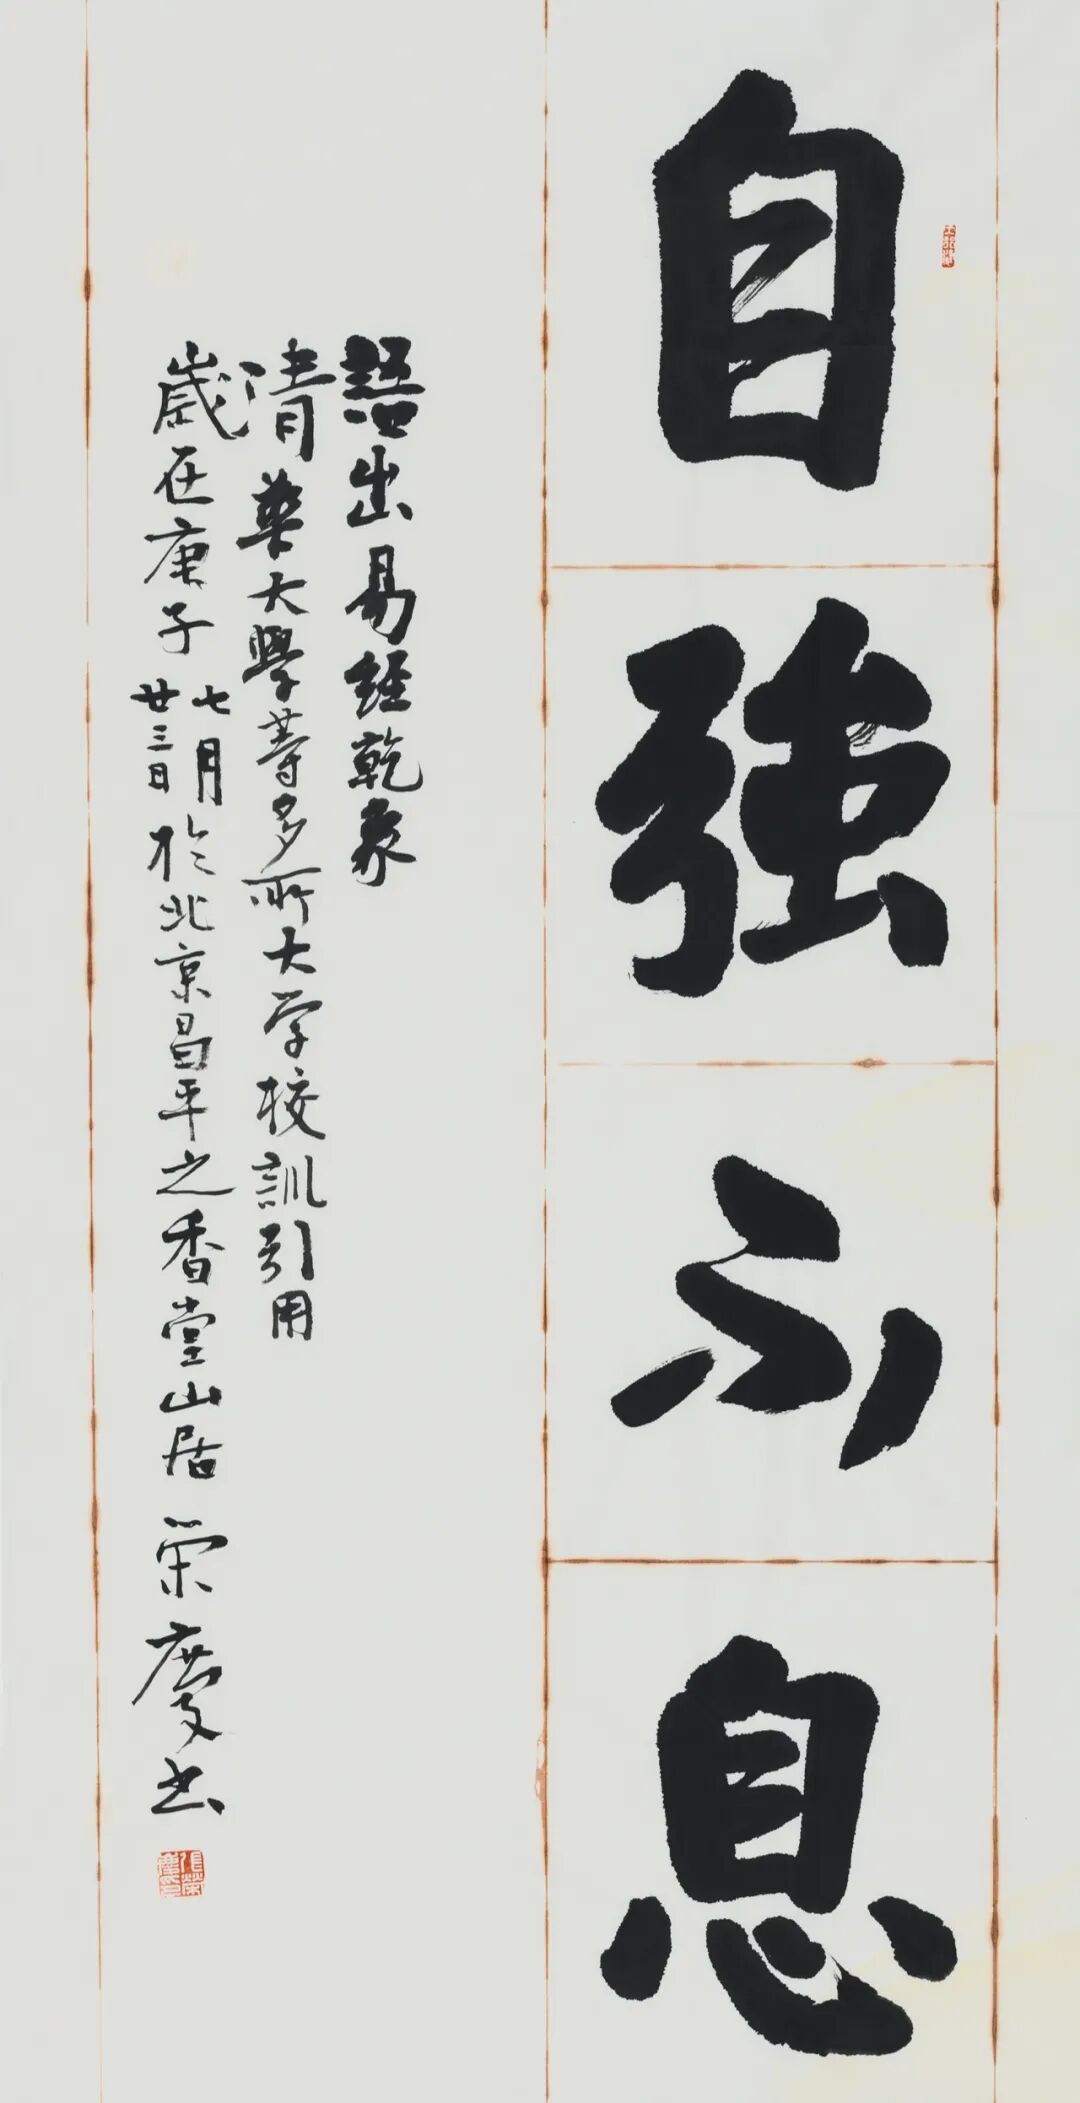 自強不息
語出易經乾象
清華大學等多所大学校訓引用
歲在庚子七月廿三日於北京昌平之香堂山居 荣慶书
張榮慶印